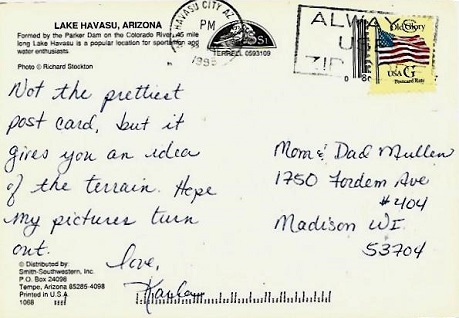 LAKE HAVASU, ARIZONA
Formed by the Parker Dam on the Colorado River, 45 mile
long Lake Havasu is a popular location for sportsmen and
water enthusiasts.
Photo © Richard Stockton
HAVASU CITY AZ
PM
1995
TERRELL 0593109
ALWAYS
USE
ZIP
Old Glory
USA G
Postcard Rate
Not the prettiest
post card, but it
gives you an idea
of the terrain. Hope
my pictures turn
out.
love,
Mom & Dad Mullen
1750 Fordem Ave
#404
Madison WI.
53704
© Distributed by:
Smith-Southwestern, Inc.
P.O. Box 24098
Tempe, Arizona 85285-4098
Printed in U.S.A.
1068